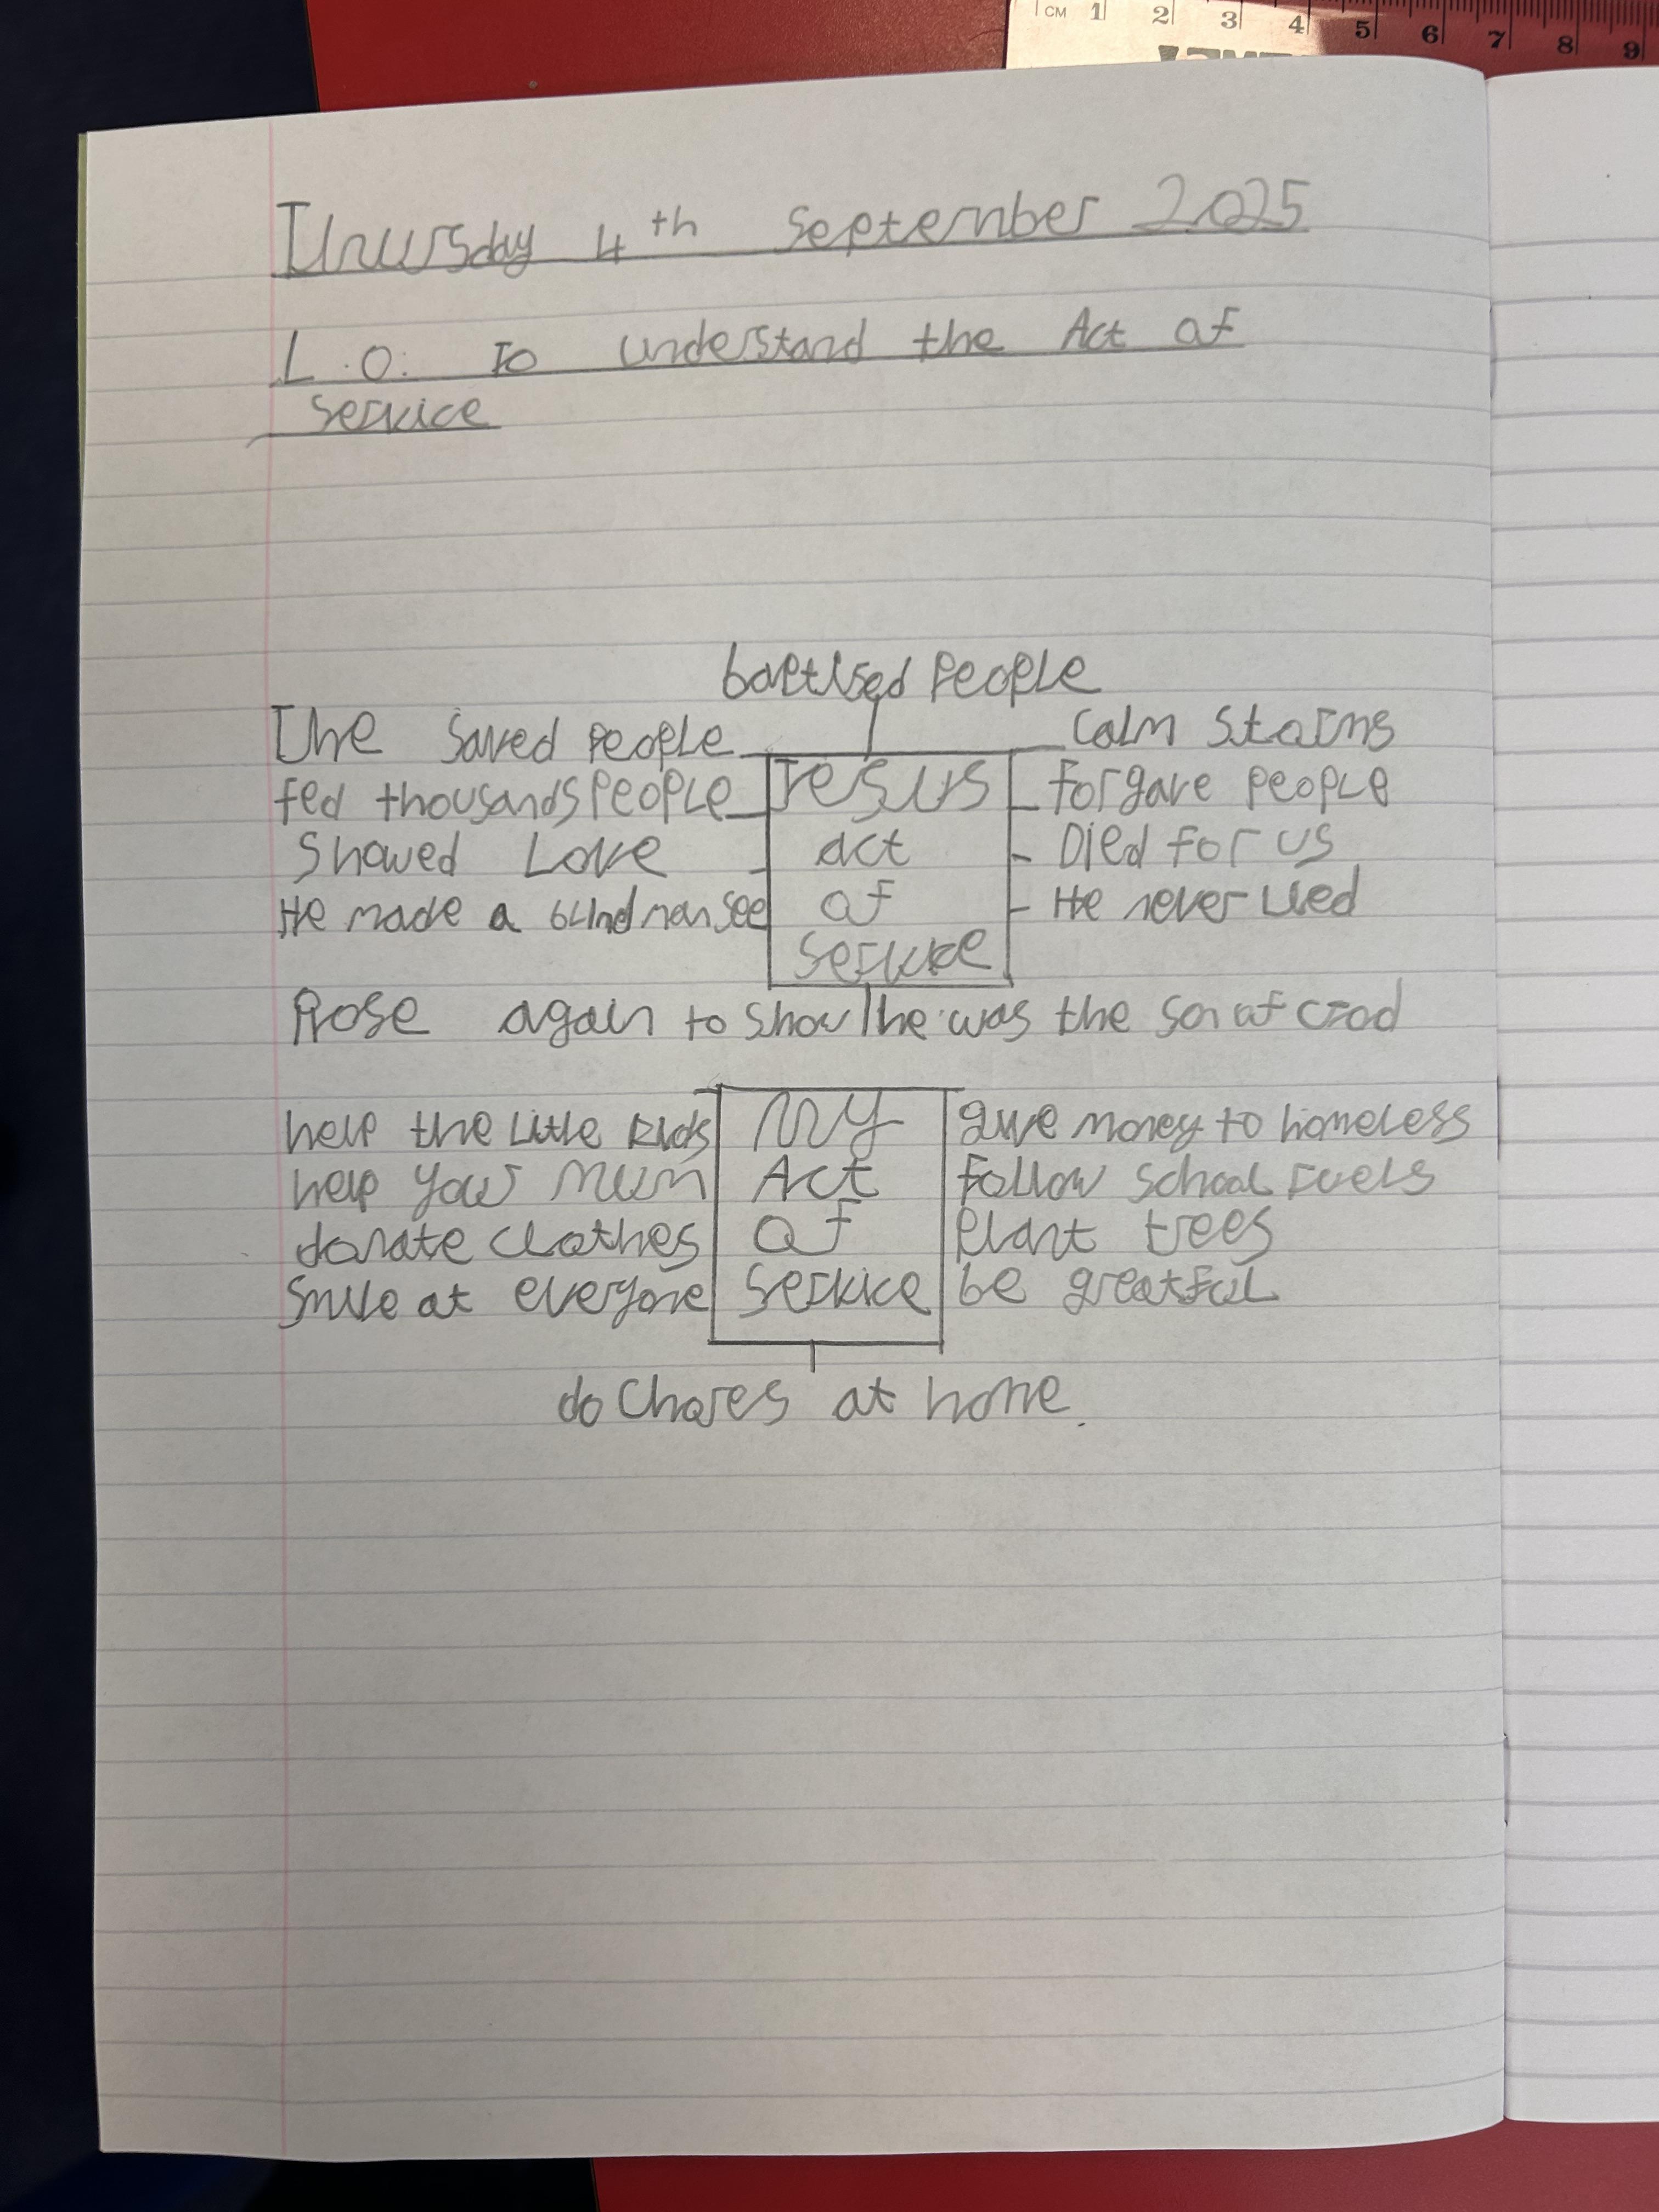 CM 1 2 3 4 5 6 7 8 9
Thursday 4th September 2025
L.O. To understand the Act of
Service
baptised People
The Saved People
Calm Storms
fed thousands People
Jesus
forgave people
Showed Love
act
Died for us
He made a blind man see
of
He never lied
Service
Rose again to show he was the son of God
help the Little kids
My
give money to homeless
help your Mum
Act
Follow School ruels
donate clothes
of
Plant trees
Smile at everyone
Service
be greatful
do Chores at home.